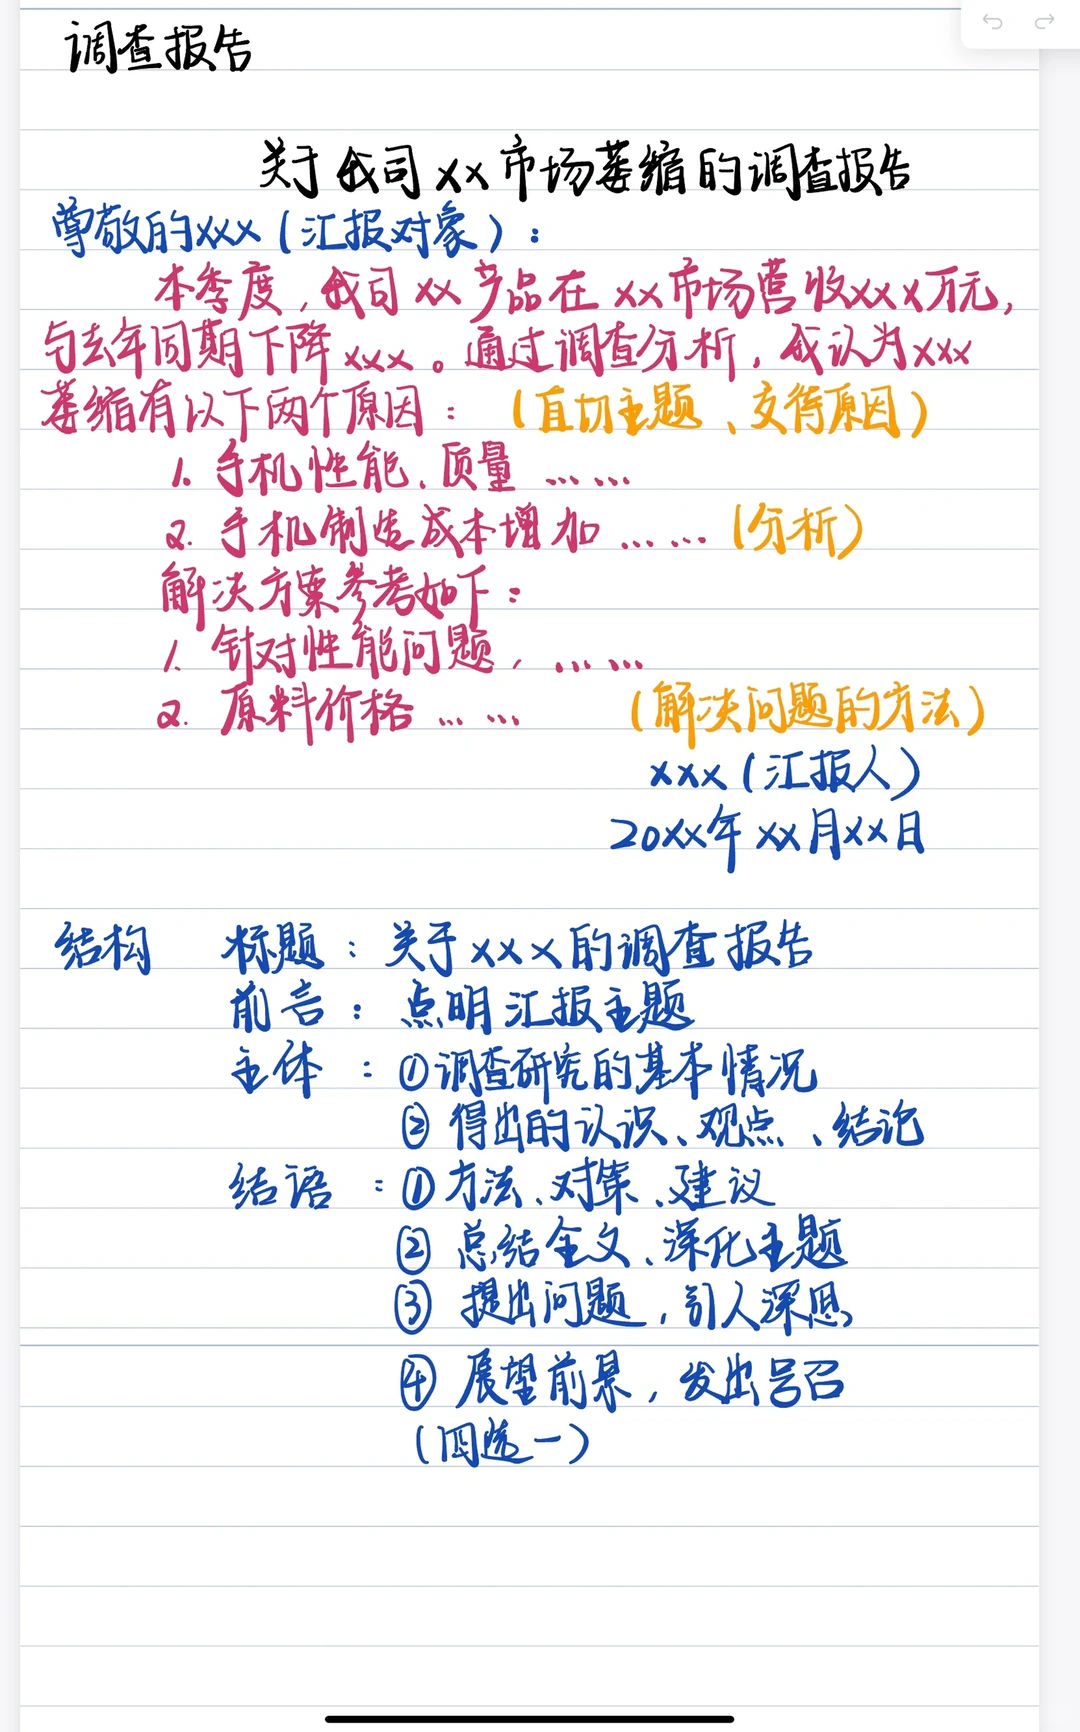 调查报告
关于我司xx市场萎缩的调查报告
尊敬的xxx(汇报对象):
本季度,我司xx产品在xx市场营收xxx万元,
与去年同期下降xxx。通过调查分析,我认为xxx
萎缩有以下两个原因: (直切主题、交待原因)
1. 手机性能、质量 ……
2. 手机制造成本增加 …… (分析)
解决方案参考如下:
1. 针对性能问题, ……
2. 原料价格 …… (解决问题的方法)
xxx(汇报人)
20xx年xx月xx日
结构 标题: 关于xxx的调查报告
前言: 点明汇报主题
主体: ①调查研究的基本情况
② 得出的认识、观点、结论
结语: ①方法、对策、建议
② 总结全文、深化主题
③ 提出问题, 引人深思
④ 展望前景, 发出号召
(四选一)